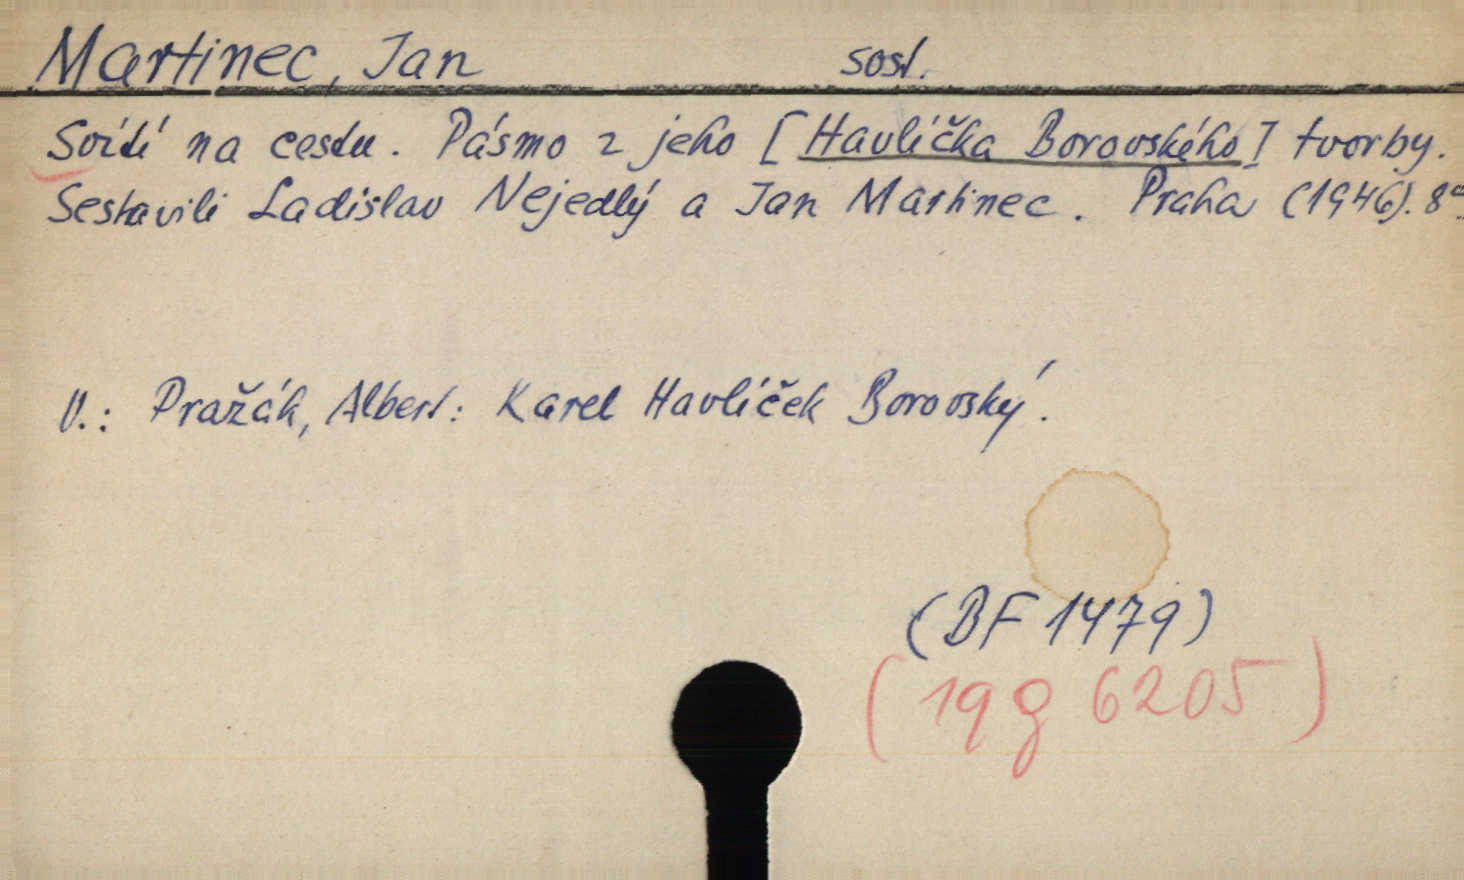 Martinec, Jan sest.
Svítí na cestu. Pásmo z jeho [Havlíčka Borovského] tvorby.
Sestavili Ladislav Nejedlý a Jan Martinec. Praha (1946). 8°.
V.: Pražák, Albert: Karel Havlíček Borovský.
(BF 1479)
(19 g 6205)